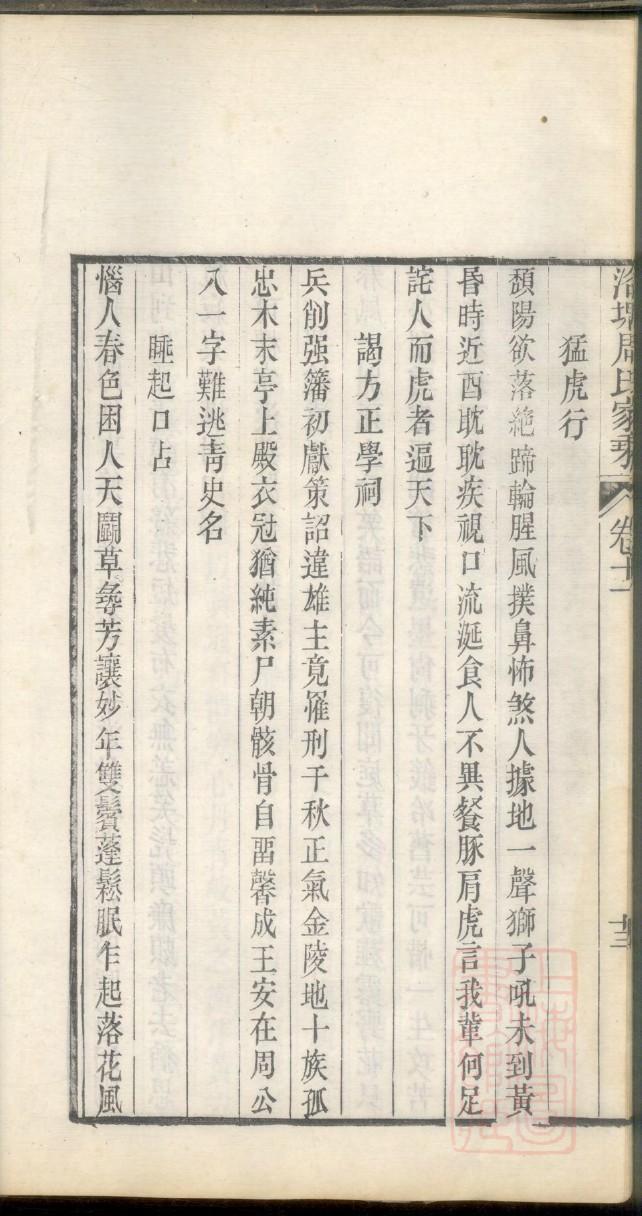 周氏家乘
卷十一
十三
猛虎行
頹陽欲落絶蹄輪腥風撲鼻怖煞人據地一聲獅子吼未到黃
昏時近酉耽耽疾視口流涎食人不異餐豚肩虎言我輩何足
詫人而虎者遍天下
謁方正學祠
兵削强籓初獻策詔違雄主竟罹刑千秋正氣金陵地十族孤
忠木末亭上殿衣冠猶純素尸朝骸骨自畱馨成王安在周公
入一字難逃靑史名
睡起口占
惱人春色困人天鬭草尋芳讓妙年雙鬢蓬鬆眠乍起落花風